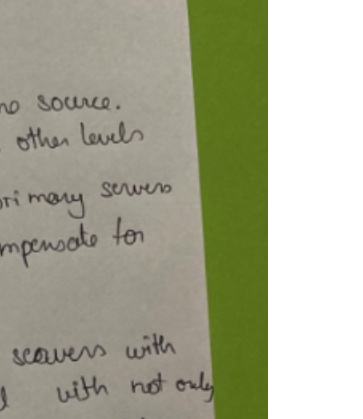 no source.
other levels
primary servers
mpensate for
servers with
with not only